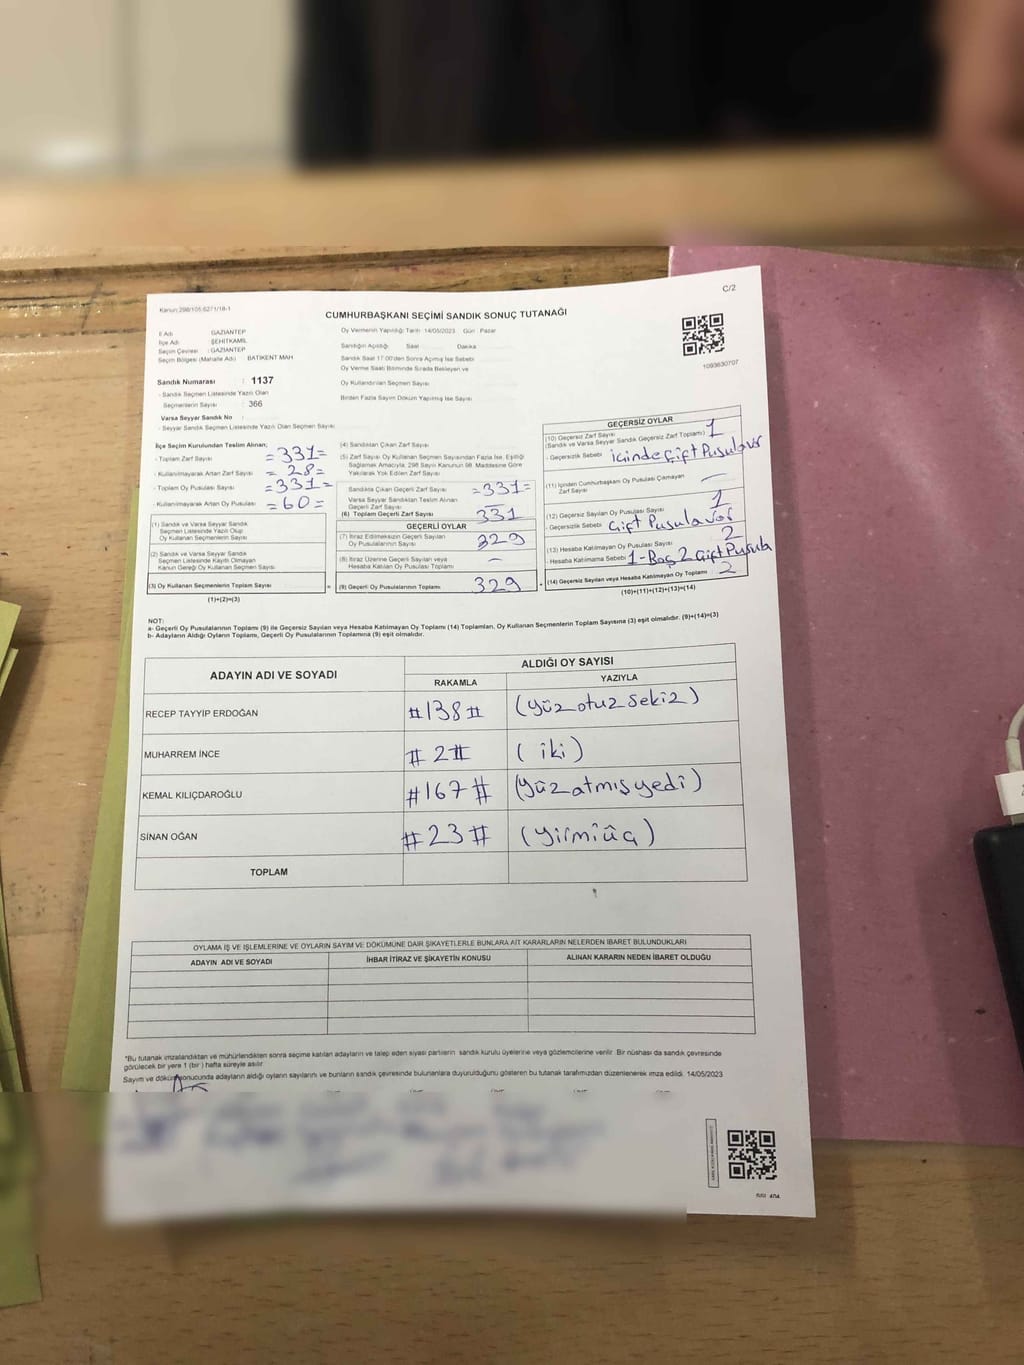 C/2
Kanun:298/105;6271/18-1
CUMHURBAŞKANI SEÇİMİ SANDIK SONUÇ TUTANAĞI
İl Adı GAZİANTEP
İlçe Adı ŞEHİTKAMİL
Seçim Çevresi : GAZİANTEP
Seçim Bölgesi (Mahalle Adı) BATIKENT MAH
Sandık Numarası : 1137
- Sandık Seçmen Listesinde Yazılı Olan
Seçmenlerin Sayısı : 366
Varsa Seyyar Sandık No :
- Seyyar Sandık Seçmen Listesinde Yazılı Olan Seçmen Sayısı
Oy Vermenin Yapıldığı Tarih :14/05/2023 Gün : Pazar
Sandığın Açıldığı Saat Dakika
Sandık Saat 17:00'den Sonra Açmış İse Sebebi
Oy Verme Saati Bitiminde Sırada Bekleyen ve
Oy Kullandırılan Seçmen Sayısı
Birden Fazla Sayım Döküm Yapılmış İse Sayısı
1093630707
İlçe Seçim Kurulundan Teslim Alınan;
- Toplam Zarf Sayısı =331=
- Kullanılmayarak Artan Zarf Sayısı = 28=
- Toplam Oy Pusulası Sayısı =331=
- Kullanılmayarak Artan Oy Pusulası =60=
(1) Sandık ve Varsa Seyyar Sandık
Seçmen Listesinde Yazılı Olup
Oy Kullanan Seçmenlerin Sayısı
(2) Sandık ve Varsa Seyyar Sandık
Seçmen Listesinde Kayıtlı Olmayan
Kanun Gereği Oy Kullanan Seçmen Sayısı
(3) Oy Kullanan Seçmenlerin Toplam Sayısı =
(1)+(2)=(3)
(4) Sandıktan Çıkan Zarf Sayısı
(5) Zarf Sayısı Oy Kullanan Seçmen Sayısından Fazla İse, Eşitliği
Sağlamak Amacıyla, 298 Sayılı Kanunun 98. Maddesine Göre
Yakılarak Yok Edilen Zarf Sayısı
Sandıkta Çıkan Geçerli Zarf Sayısı =331=
Varsa Seyyar Sandıktan Teslim Alınan
Geçerli Zarf Sayısı
(6) Toplam Geçerli Zarf Sayısı 331
GEÇERLİ OYLAR
(7) İtiraz Edilmeksizin Geçerli Sayılan
Oy Pusulalarının Sayısı 329
(8) İtiraz Üzerine Geçerli Sayılan veya
Hesaba Katılan Oy Pusulası Toplamı –
(9) Geçerli Oy Pusulalarının Toplamı 329 +
GEÇERSİZ OYLAR
(10) Geçersiz Zarf Sayısı
(Sandık ve Varsa Seyyar Sandık Geçersiz Zarf Toplamı) 1
- Geçersizlik Sebebi içinde çift Pusula var
(11) İçinden Cumhurbaşkanı Oy Pusulası Çıkmayan
Zarf Sayısı –
(12) Geçersiz Sayılan Oy Pusulası Sayısı 1
- Geçersizlik Sebebi Çift Pusula var
(13) Hesaba Katılmayan Oy Pusulası Sayısı 2
- Hesaba Katılmama Sebebi 1-Boş 2 Çift Pusula
(14) Geçersiz Sayılan veya Hesaba Katılmayan Oy Toplamı 2
(10)+(11)+(12)+(13)=(14)
NOT:
a- Geçerli Oy Pusulalarının Toplamı (9) ile Geçersiz Sayılan veya Hesaba Katılmayan Oy Toplamı (14) Toplamları, Oy Kullanan Seçmenlerin Toplam Sayısına (3) eşit olmalıdır. (9)+(14)=(3)
b- Adayların Aldığı Oyların Toplamı, Geçerli Oy Pusulalarının Toplamına (9) eşit olmalıdır.
ADAYIN ADI VE SOYADI ALDIĞI OY SAYISI
RAKAMLA YAZIYLA
RECEP TAYYİP ERDOĞAN #138# (yüz otuz sekiz)
MUHARREM İNCE #2# (iki)
KEMAL KILIÇDAROĞLU #167# (yüz atmış yedi)
SİNAN OĞAN #23# (yirmiüç)
TOPLAM
OYLAMA İŞ VE İŞLEMLERİNE VE OYLARIN SAYIM VE DÖKÜMÜNE DAİR ŞİKAYETLERLE BUNLARA AİT KARARLARIN NELERDEN İBARET BULUNDUKLARI
ADAYIN ADI VE SOYADI İHBAR İTİRAZ VE ŞİKAYETİN KONUSU ALINAN KARARIN NEDEN İBARET OLDUĞU
*Bu tutanak imzalandıktan ve mühürlendikten sonra seçime katılan adayların ve talep eden siyasi partilerin sandık kurulu üyelerine veya gözlemcilerine verilir. Bir nüshası da sandık çevresinde
görülecek bir yere 1 (bir) hafta süreyle asılır.
Sayım ve döküm sonucunda adayların aldığı oyların sayılarını ve bunların sandık çevresinde bulunanlara duyurulduğunu gösteren bu tutanak tarafımızdan düzenlenerek imza edildi. 14/05/2023